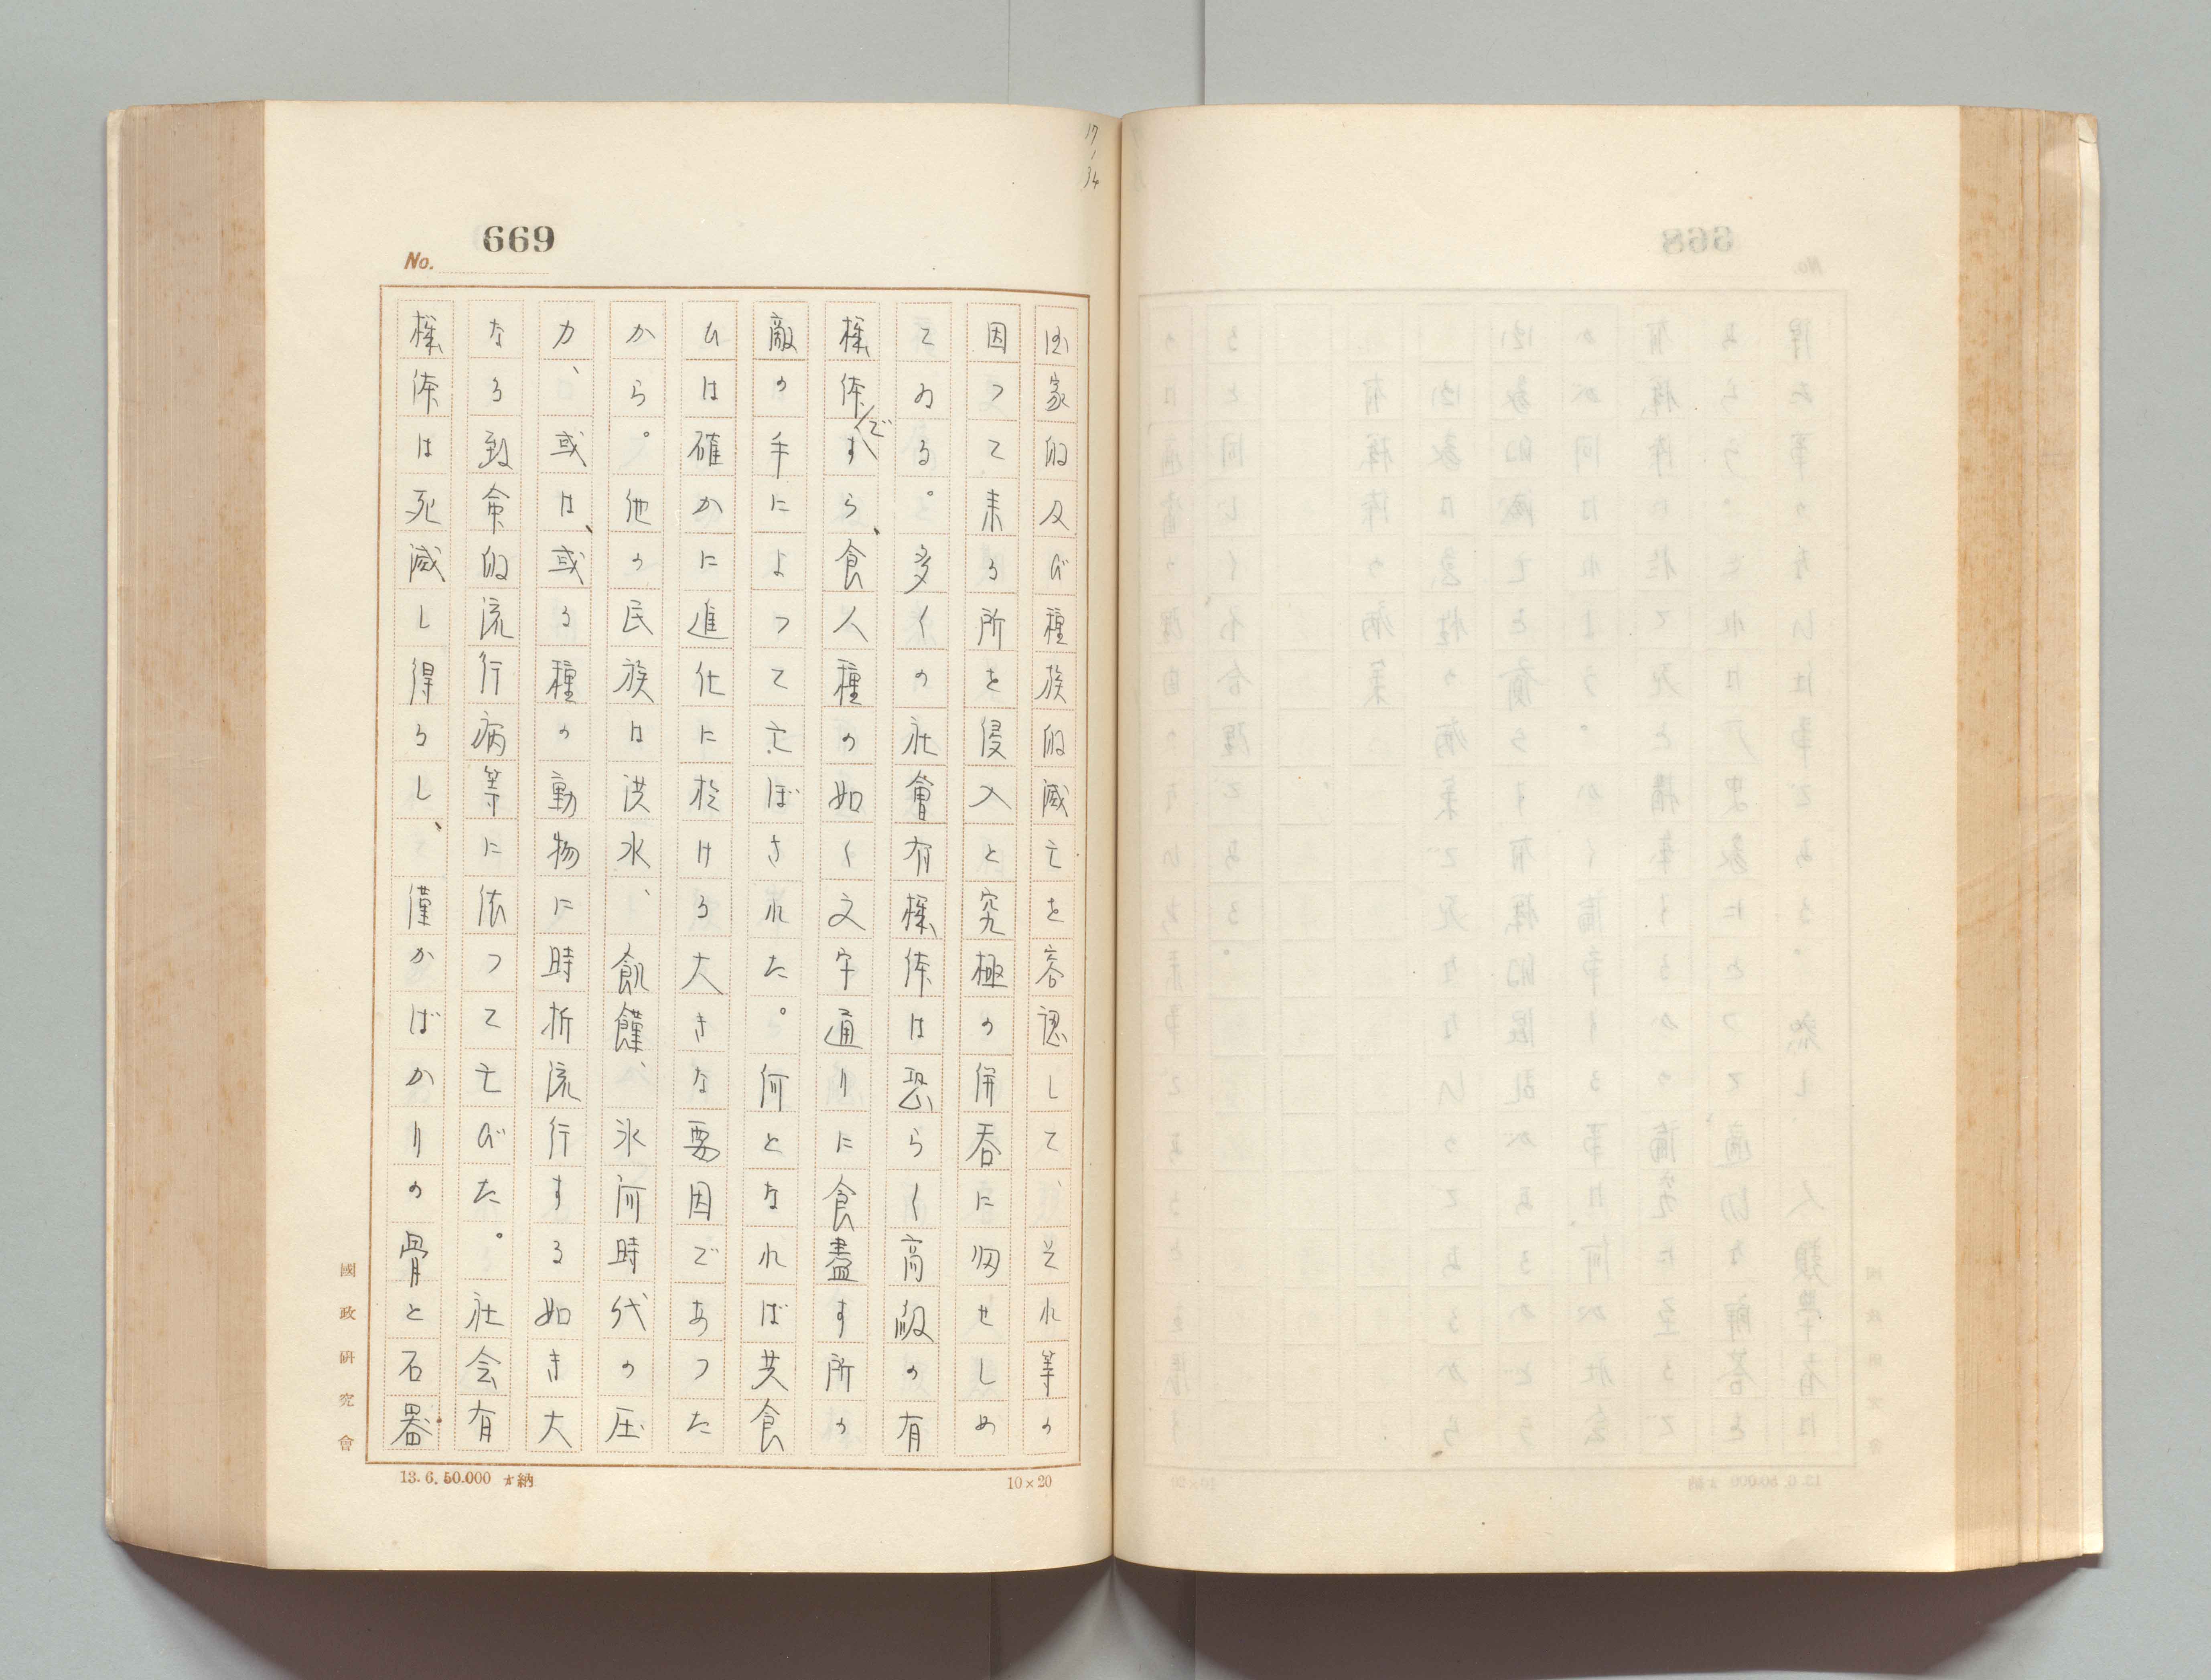 17/34
669
No.
国家的及び種族的滅亡を容認して、それ等の
因つて来る所を侵入と究極の併呑に歿せしめ
てゐる。多くの社會有機体は恐らく高級の有
機体ですら、食人種の如く文字通りに食盡す所の
敵の手によつて亡ぼされた。何となれば共食
ひは確かに進化に於ける大きな要因であつた
から。他の民族は洪水、飢饉、氷河時代の圧
力、或は、或る種の動物に時折流行する如き大
なる致命的流行病等に依つて亡びた。社会有
機体は死滅し得るし、僅かばかりの骨と石器
國政研究會
13.6.50.000 才納
10×20